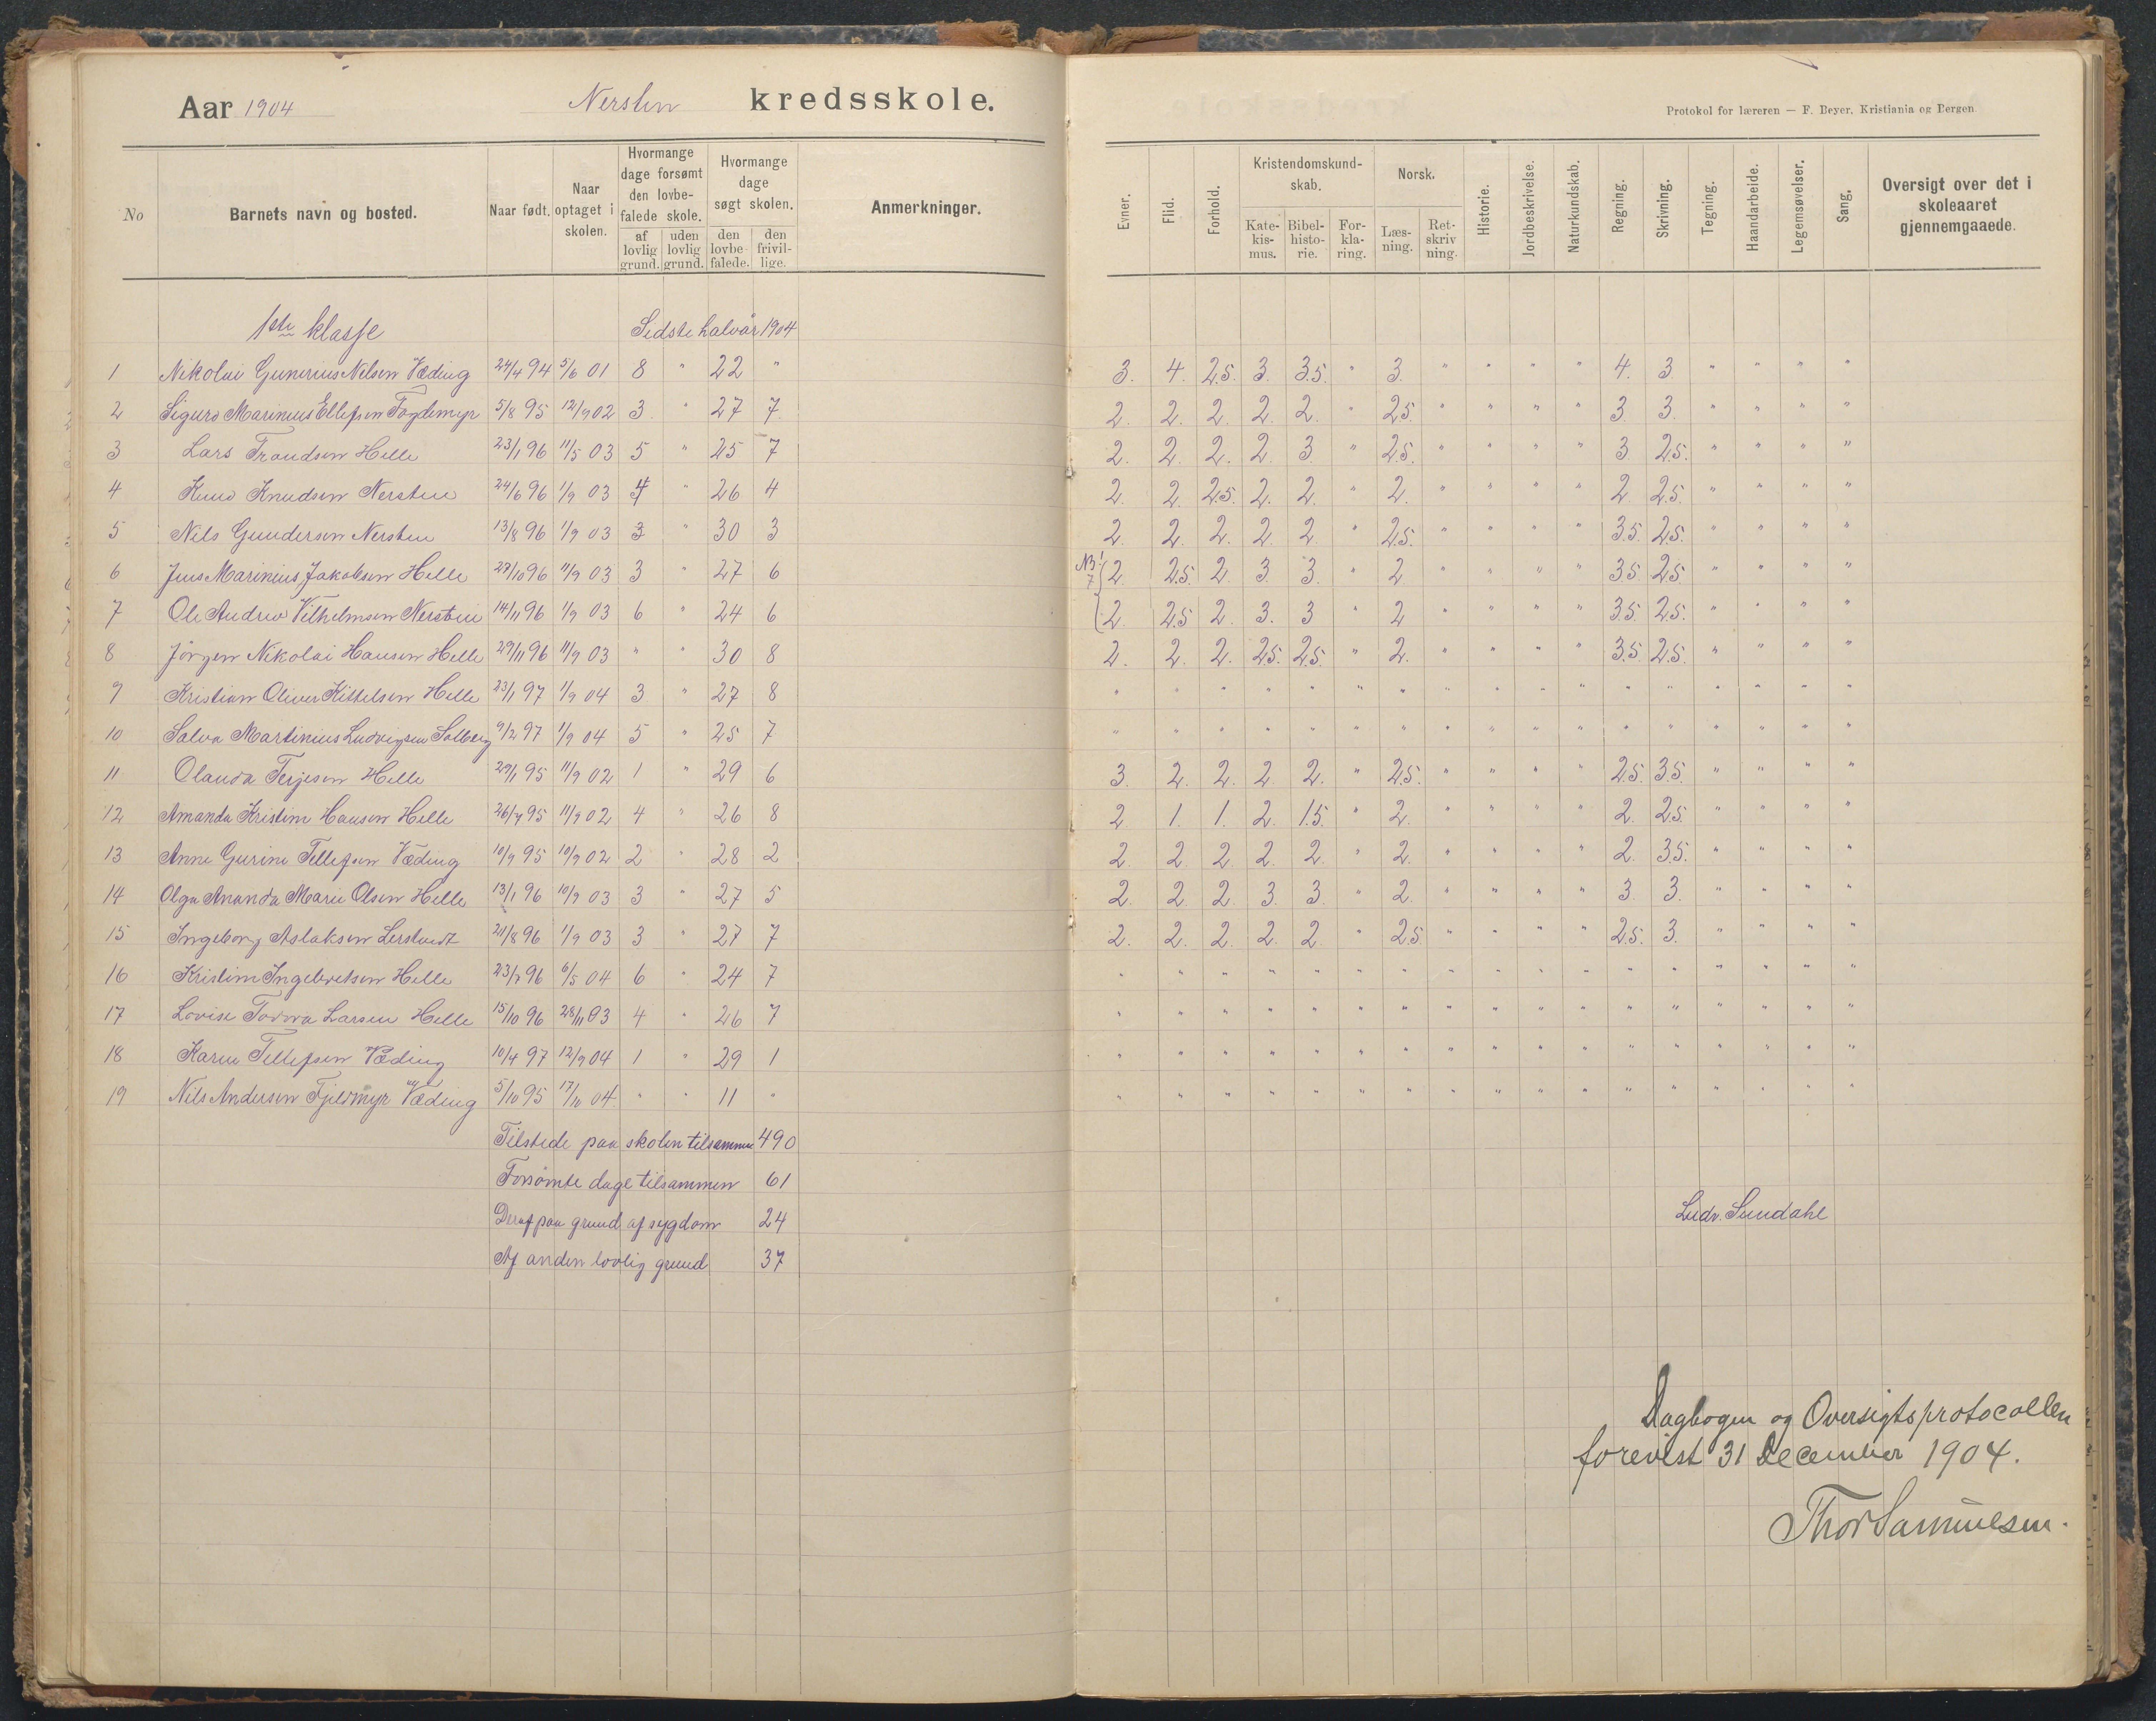 Aar 1904 Nersten kredsskole.
Protokol for læreren — F. Beyer, Kristiania og Bergen
No | Barnets navn og bosted. | Naar født. | Naar optaget i skolen. | Hvormange dage forsømt den lovbefalede skole. af lovlig grund. | uden lovlig grund. | Hvormange dage søgt skolen. den lovbefalede. | den frivillige. | Anmerkninger. | Evner. | Flid. | Forhold. | Kristendomskundskab. Katekismus. | Bibelhistorie. | Forklaring. | Norsk. Læsning. | Retskrivning. | Historie. | Jordbeskrivelse. | Naturkundskab. | Regning. | Skrivning. | Tegning. | Haandarbeide. | Legemsøvelser. | Sang. | Oversigt over det i skoleaaret gjennemgaaede.
1ste klasse Sidste halvår 1904
1 Nikolai Gunerius Nilsen Væding 24/4 94 5/6 01 8 " 22 " 3. 4. 2.5. 3. 3.5. " 3. " " " " 4. 3. " " " "
2 Sigurd Marinius Ellefsen Fogdemyr 5/8 95 12/9 02 3 " 27 7 2. 2. 2. 2. 2. " 2.5. " " " " 3. 3. " " " "
3 Lars Traudsen Helle 23/1 96 11/5 03 5 " 25 7 2. 2. 2. 2. 3 " 2.5. " " " " 3 2.5. " " " "
4 Knud Knudsen Nersten 24/6 96 1/9 03 4 " 26 4 2. 2. 2.5. 2. 2. " 2. " " " " 2 2.5. " " " "
5 Nils Gundersen Nersten 13/8 96 1/9 03 3 " 30 3 2. 2. 2. 2. 2. " 2.5. " " " " 3.5. 2.5. " " " "
6 Jens Marinius Jakobsen Helle 27/10 96 11/9 03 3 " 27 6 NB! 7 2. 2.5. 2 3. 3. " 2 " " " " 3.5. 2.5. " " " "
7 Ole Andreo Vilhelmsen Nersten 14/11 96 1/9 03 6 " 24 6 2. 2.5 2. 3. 3 " 2 " " " " 3.5. 2.5. " " " "
8 Jörgen Nikolai Hansen Helle 29/11 96 11/9 03 " " 30 8 2. 2. 2. 2.5. 2.5. " 2. " " " " 3.5. 2.5. " " " "
9 Kristian Oliver Kittelsen Helle 23/1 97 1/9 04 3 " 27 8 " " " " " " " " " " " " " " " " "
10 Salva Martinius Ludvigsen Solberg 9/2 97 1/9 04 5 " 25 7 " " " " " " " " " " " " " " " " "
11 Olanda Terjesen Helle 29/1 95 11/9 02 1 " 29 6 3. 2. 2. 2. 2. " 2.5. " " " " 2.5. 3.5. " " " "
12 Amanda Kristine Hansen Helle 26/7 95 11/9 02 4 " 26 8 2 1. 1. 2. 1.5. " 2. " " " " 2. 2.5. " " " "
13 Anne Gurine Tellefsen Væding 10/9 95 10/9 02 2 " 28 2 2. 2. 2. 2. 2. " 2. " " " " 2. 3.5. " " " "
14 Olga Ananda Marie Olsen Helle 13/1 96 10/9 03 3 " 27 5 2. 2 2. 3. 3. " 2. " " " " 3. 3. " " " "
15 Ingeborg Aslaksen Lerstvedt 21/8 96 1/9 03 3 " 27 7 2. 2. 2. 2. 2. " 2.5 " " " " 2.5. 3. " " " "
16 Kristine Ingebretsen Helle 23/7 96 6/5 04 6 " 24 7 " " " " " " " " " " " " " " " " "
17 Lovise Tovora Larsen Helle 15/10 96 28/11 03 4 " 26 7 " " " " " " " " " " " " " " " " "
18 Karen Tellefsen Væding 10/4 97 12/9 04 1 " 29 1 " " " " " " " " " " " " " " " " "
19 Nils Andersen Fjeldmyr Væding 5/10 95 17/10 04 " " 11 " " " " " " " " " " " " " " " " " "
Tilstede paa skolen tilsammen 490
Forsömte dage tilsammen 61
Deraf paa grund af sygdom 24
Af anden lovlig grund 37
Ludv. Sundahl
Dagbogen og Oversigtsprotocollen
forevist 31 December 1904.
Thor Samuelsen.